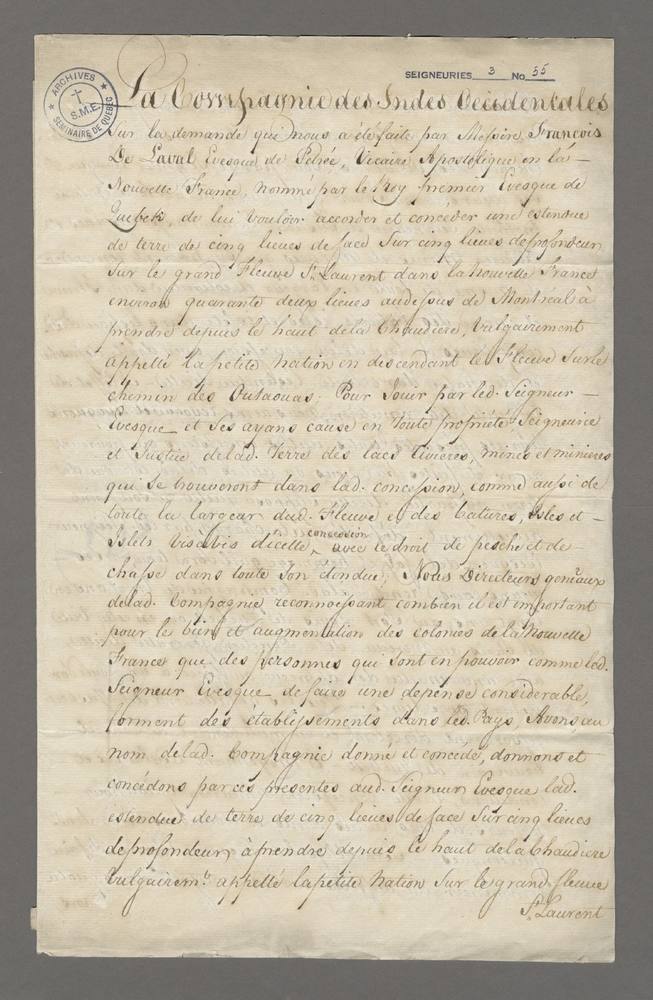 SEIGNEURIES 3 No 55
ARCHIVES
S.M.E.
SÉMINAIRE DE QUÉBEC
La Compagnie des Indes Occidentales
Sur la demande qui nous a été faite par Messire François
De Laval Evesque de Petrée, Vicaire Apostolique en la
Nouvelle France, nommé par le Roy premier Evesque de
Quebek, de lui vouloir accorder et concéder une estendue
de terre de cinq lieues de face Sur cinq lieues de profondeur
Sur le grand Fleuve St. Laurent dans la Nouvelle France
environ quarante deux lieues audessus de Montreal à
prendre depuis le haut dela Chaudiere, Vulgairement
appellé la petite Nation en descendant le Fleuve Sur le
chemin des Outaouas; Pour Jouir par led. Seigneur
Evesque et Ses ayans cause en toute propriété Seigneurie
et Justice delad. terre des lacs Rivieres, mines et minieres
qui Se trouveront dans lad. concession, comme aussi de
toute la largeur dud. Fleuve et des batures, Isles et
Islets Visavis d'icelle concession avec le droit de pesche et de
chasse dans toute Son étendue; Nous Directeurs généraux
delad. Compagnie reconnoissant combien il est important
pour le bien et augmentation des colonies de la Nouvelle
France que des personnes qui Sont en pouvoir comme led.
Seigneur Evesque, de faire une depense considerable,
forment des établissements dans led. Pays, Avons au
nom delad. Compagnie donné et concédé, donnons et
concédons par ces presentes aud. Seigneur Evesque lad.
estendue de terre de cinq lieues de face Sur cinq lieues
de profondeur, à prendre depuis le haut dela Chaudiere
Vulgairemt. appellé la petite Nation Sur le grand fleuve
St. Laurent